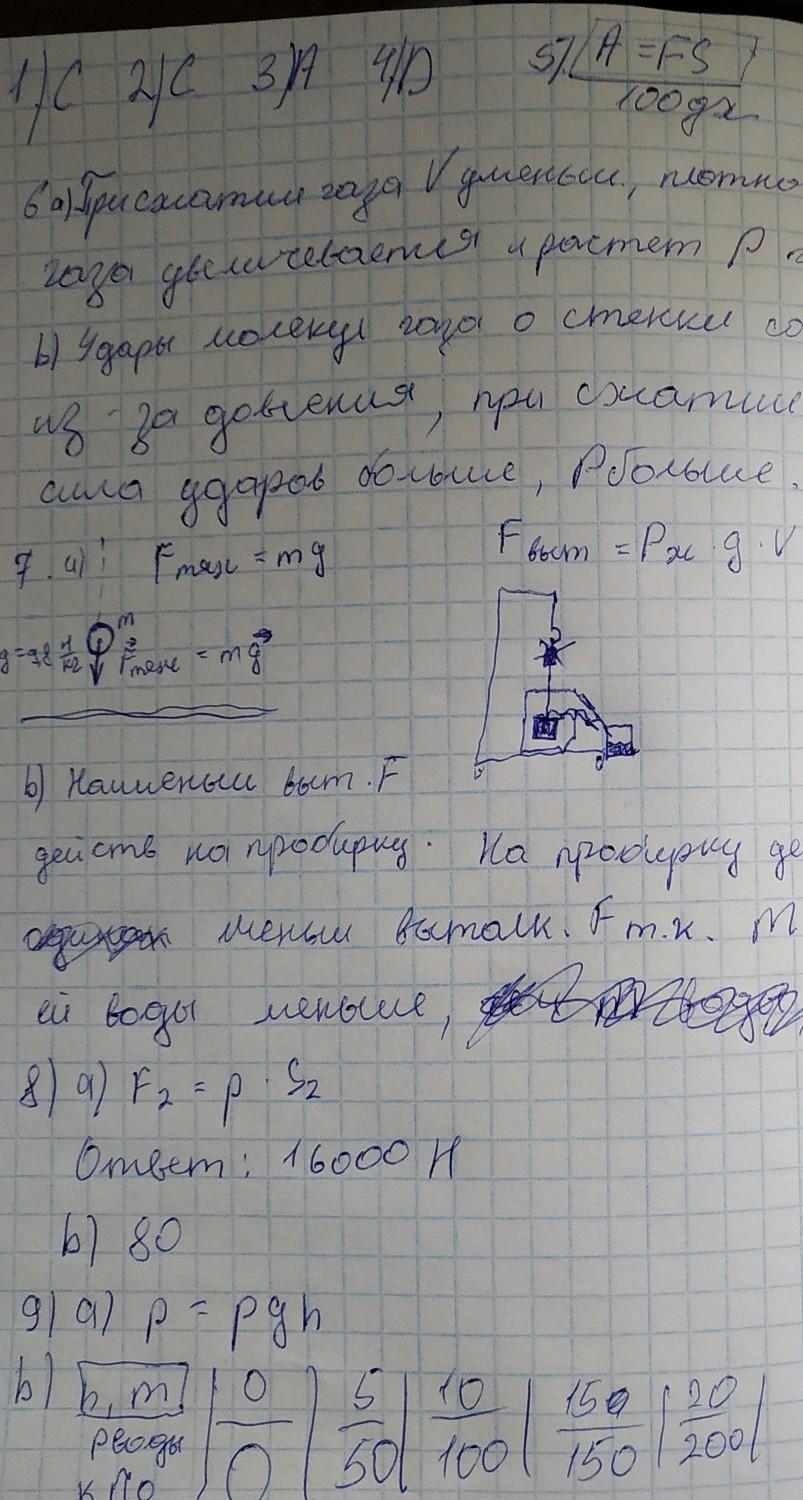 1) С 2) С 3) А 4) D 5) A = FS
100дж
6 а) При сжатии газа V уменьш., плотно
газа увеличевается и растет p
b) Удары молекул газа о стенки со
из-за довления, при сжатии
сила ударов больше, P больше.
7. а) Fтяж = mg Fвыт = Pж · g · V
m
g = 9,8 Н/кг Fтяж = mg
b) Наименьш выт. F
действ на пробирку. На пробирку де
меньш выталк. F т.к. m
ей воды меньше,
8) а) F2 = p · S2
Ответ: 16000 Н
b) 80
9) а) p = pgh
b) h, m | 0 | 5 | 10 | 15 | 20 |
Pводы 0 | 50 | 100 | 150 | 200 |
кПа